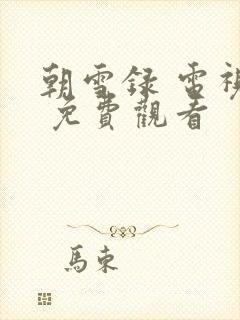 朝雪録 電視
免費觀看
馬東